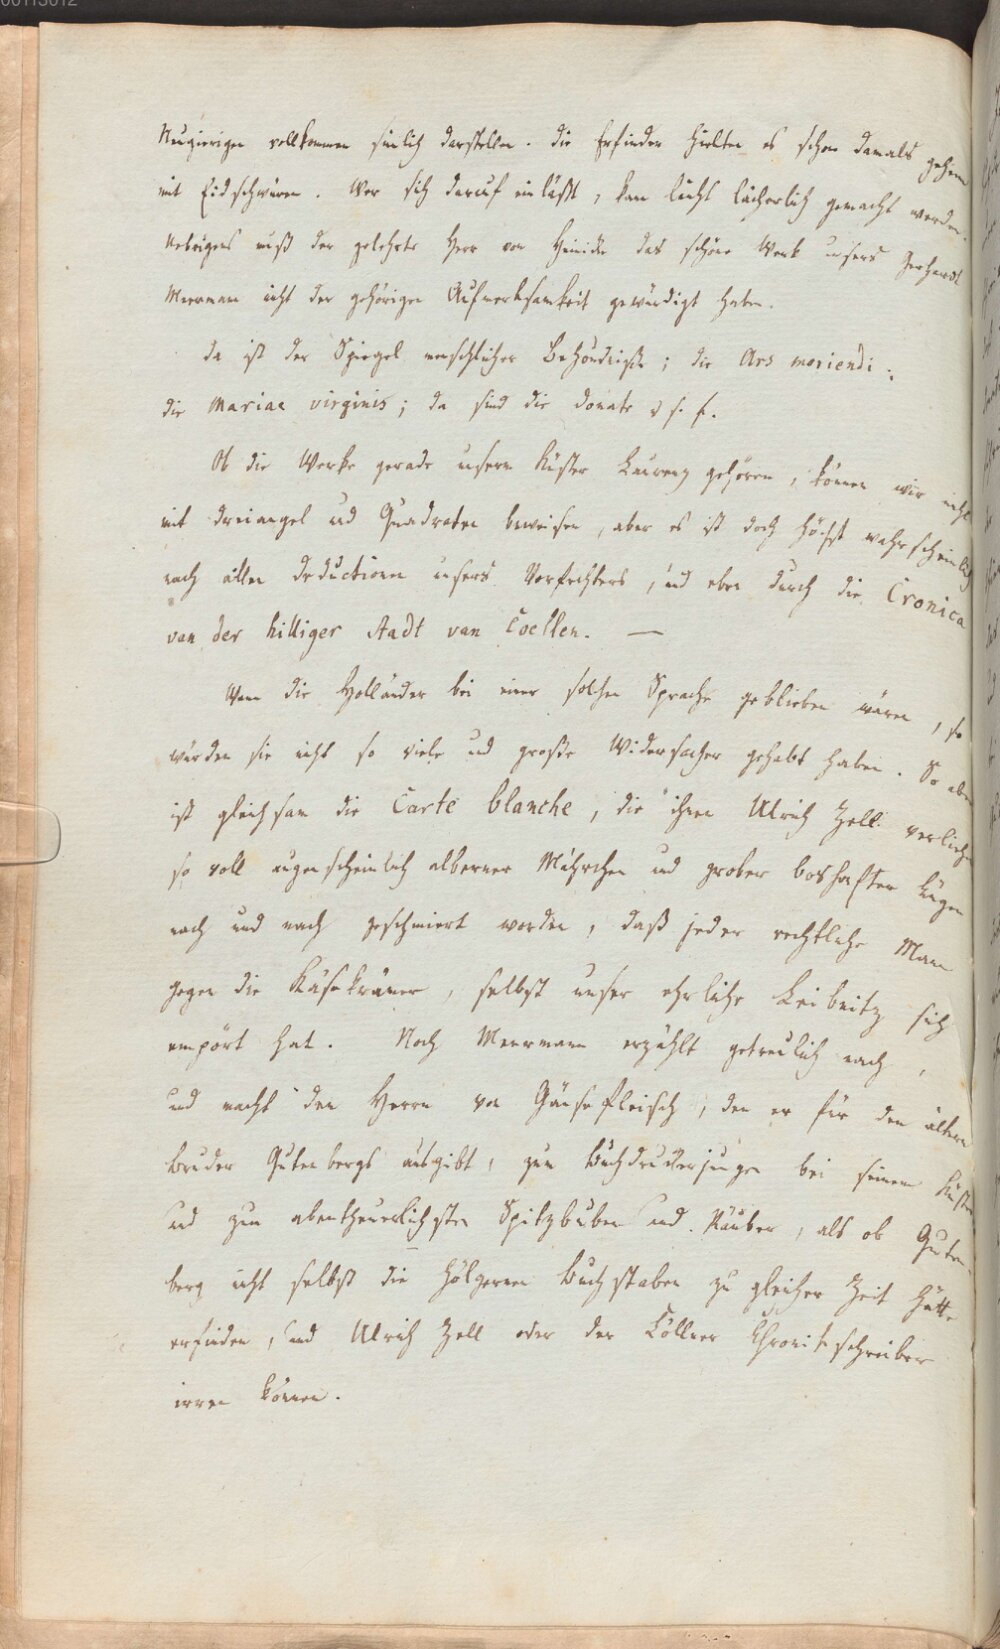 00113012
Neugierigen vollkommen sinlich darstellen. die Erfinder hielten es schon damals geheim
mit Eidschwüren. Wer sich darauf einläßt, kan leicht lächerlich gemacht werden.
Uebrigens muß der gelehrte Herr von Heinicke das schöne Werk unsers Gerhardt
Meerman nicht der gehörigen Aufmerksamkeit gewürdigt haben.
da ist der Spiegel menschlicher Behöudniße; die Ars moriendi;
die Mariae virginis; da sind die Donate u s. f.
Ob die Werke gerade unserm Küster Laurenz gehören, können wir nicht
mit dreiangel und Quadraten beweisen, aber es ist doch höchst wahrscheinlich
nach allen deductionen unsers Vorfechters, und eben durch die Cronica
van der hilliger Stadt van Coellen. —
Wenn die Holländer bei einer solchen Sprache geblieben wären, so
würden sie nicht so viele und große Widersacher gehabt haben. So aber
ist gleichsam die Carte blanche, die ihnen Ulrich Zell verliehen
so voll augenscheinlich alberner Mährchen und grober boshafter Lügen
nach und nach geschmiert worden, daß jeder rechtliche Mann
gegen die Käsekrämer, selbst unser ehrlicher Leibnitz sich
empört hat. Noch Meermann erzählt getreulich nach,
und macht den Herrn von Gänsefleisch, den er für den ältern
Bruder Gutenbergs ausgibt, zum Buchdruckerjungen bei seinem Küster
und zum abentheuerlichsten Spitzbuben und Räuber, als ob Guten-
berg nicht selbst die hölzernen Buchstaben zu gleicher Zeit hätte
erfinden, und Ulrich Zell oder der Cöllner Chronikschreiber
irren können.